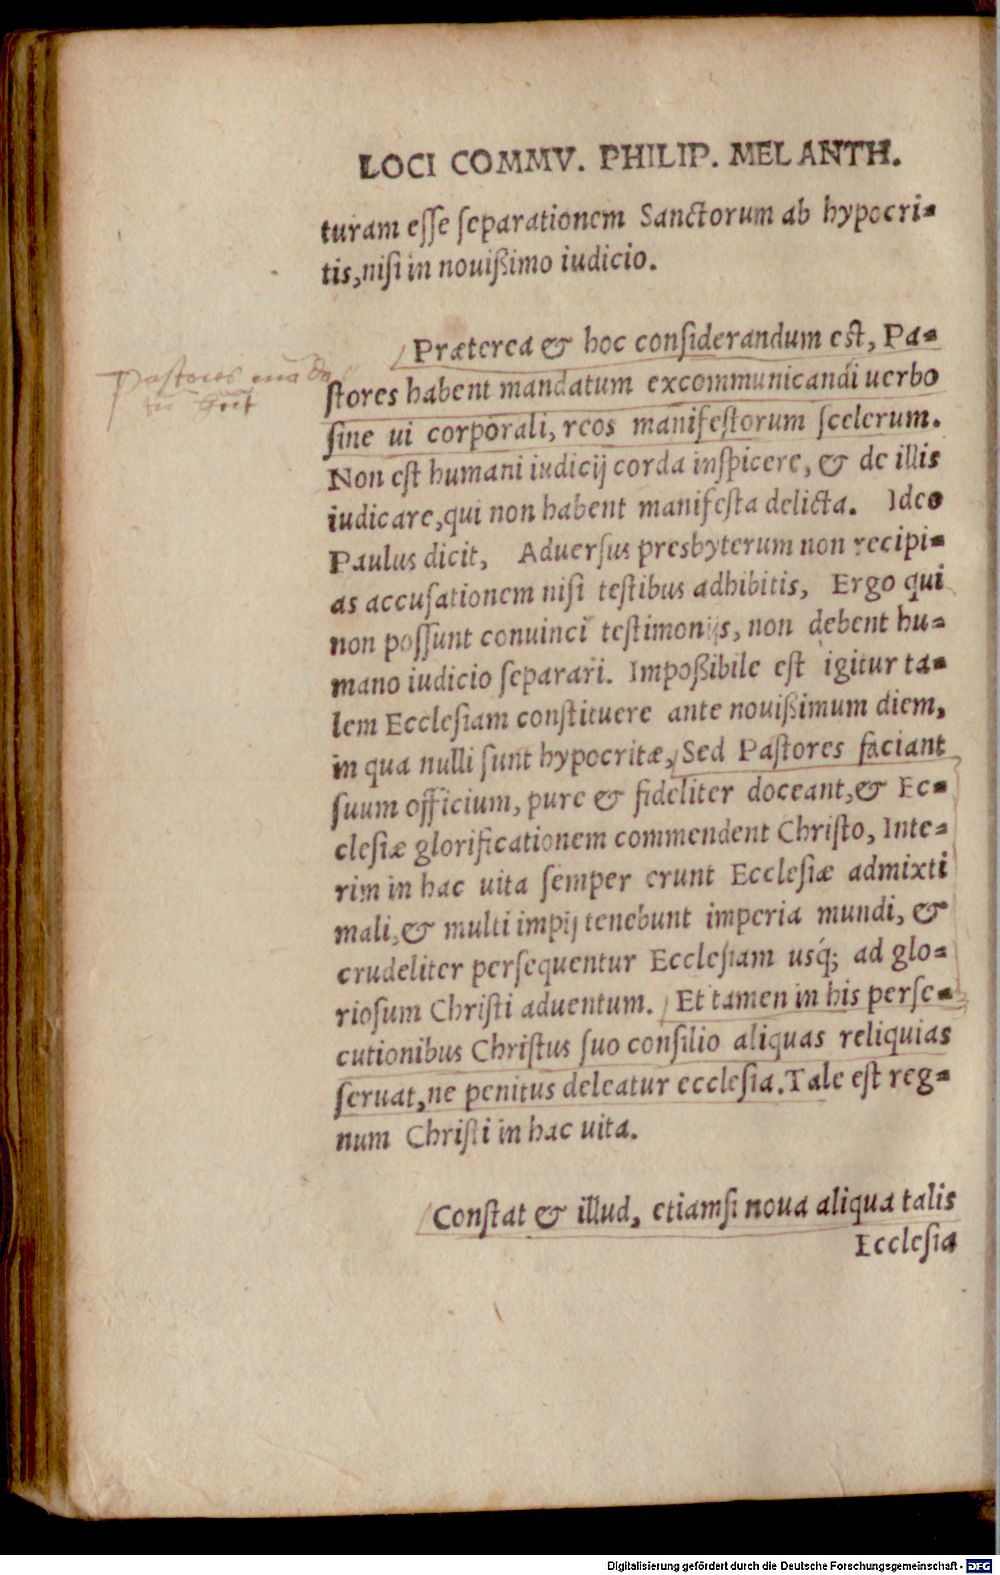 LOCI COMMV. PHILIP. MELANTH.
turam esse separationem Sanctorum ab hypocri=
tis, nisi in nouißimo iudicio.
Præterea & hoc considerandum est, Pa=
Pastores manda
tũ hñt
stores habent mandatum excommunicandi uerbo
sine ui corporali, reos manifestorum scelerum.
Non est humani iudicij corda inspicere, & de illis
iudicare, qui non habent manifesta delicta. Ideo
Paulus dicit, Aduersus presbyterum non recipi=
as accusationem nisi testibus adhibitis, Ergo qui
non possunt conuinci testimonijs, non debent hu=
mano iudicio separari. Impoßibile est igitur ta=
lem Ecclesiam constituere ante nouißimum diem,
in qua nulli sunt hypocritæ, Sed Pastores faciant
suum officium, pure & fideliter doceant, & Ec=
clesiæ glorificationem commendent Christo, Inte=
rim in hac uita semper erunt Ecclesiæ admixti
mali, & multi impij tenebunt imperia mundi, &
crudeliter persequentur Ecclesiam usq́; ad glo=
riosum Christi aduentum. Et tamen in his perse=
cutionibus Christus suo consilio aliquas reliquias
seruat, ne penitus deleatur ecclesia. Tale est reg=
num Christi in hac uita.
Constat & illud, etiamsi noua aliqua talis
Ecclesia
Digitalisierung gefördert durch die Deutsche Forschungsgemeinschaft - DFG